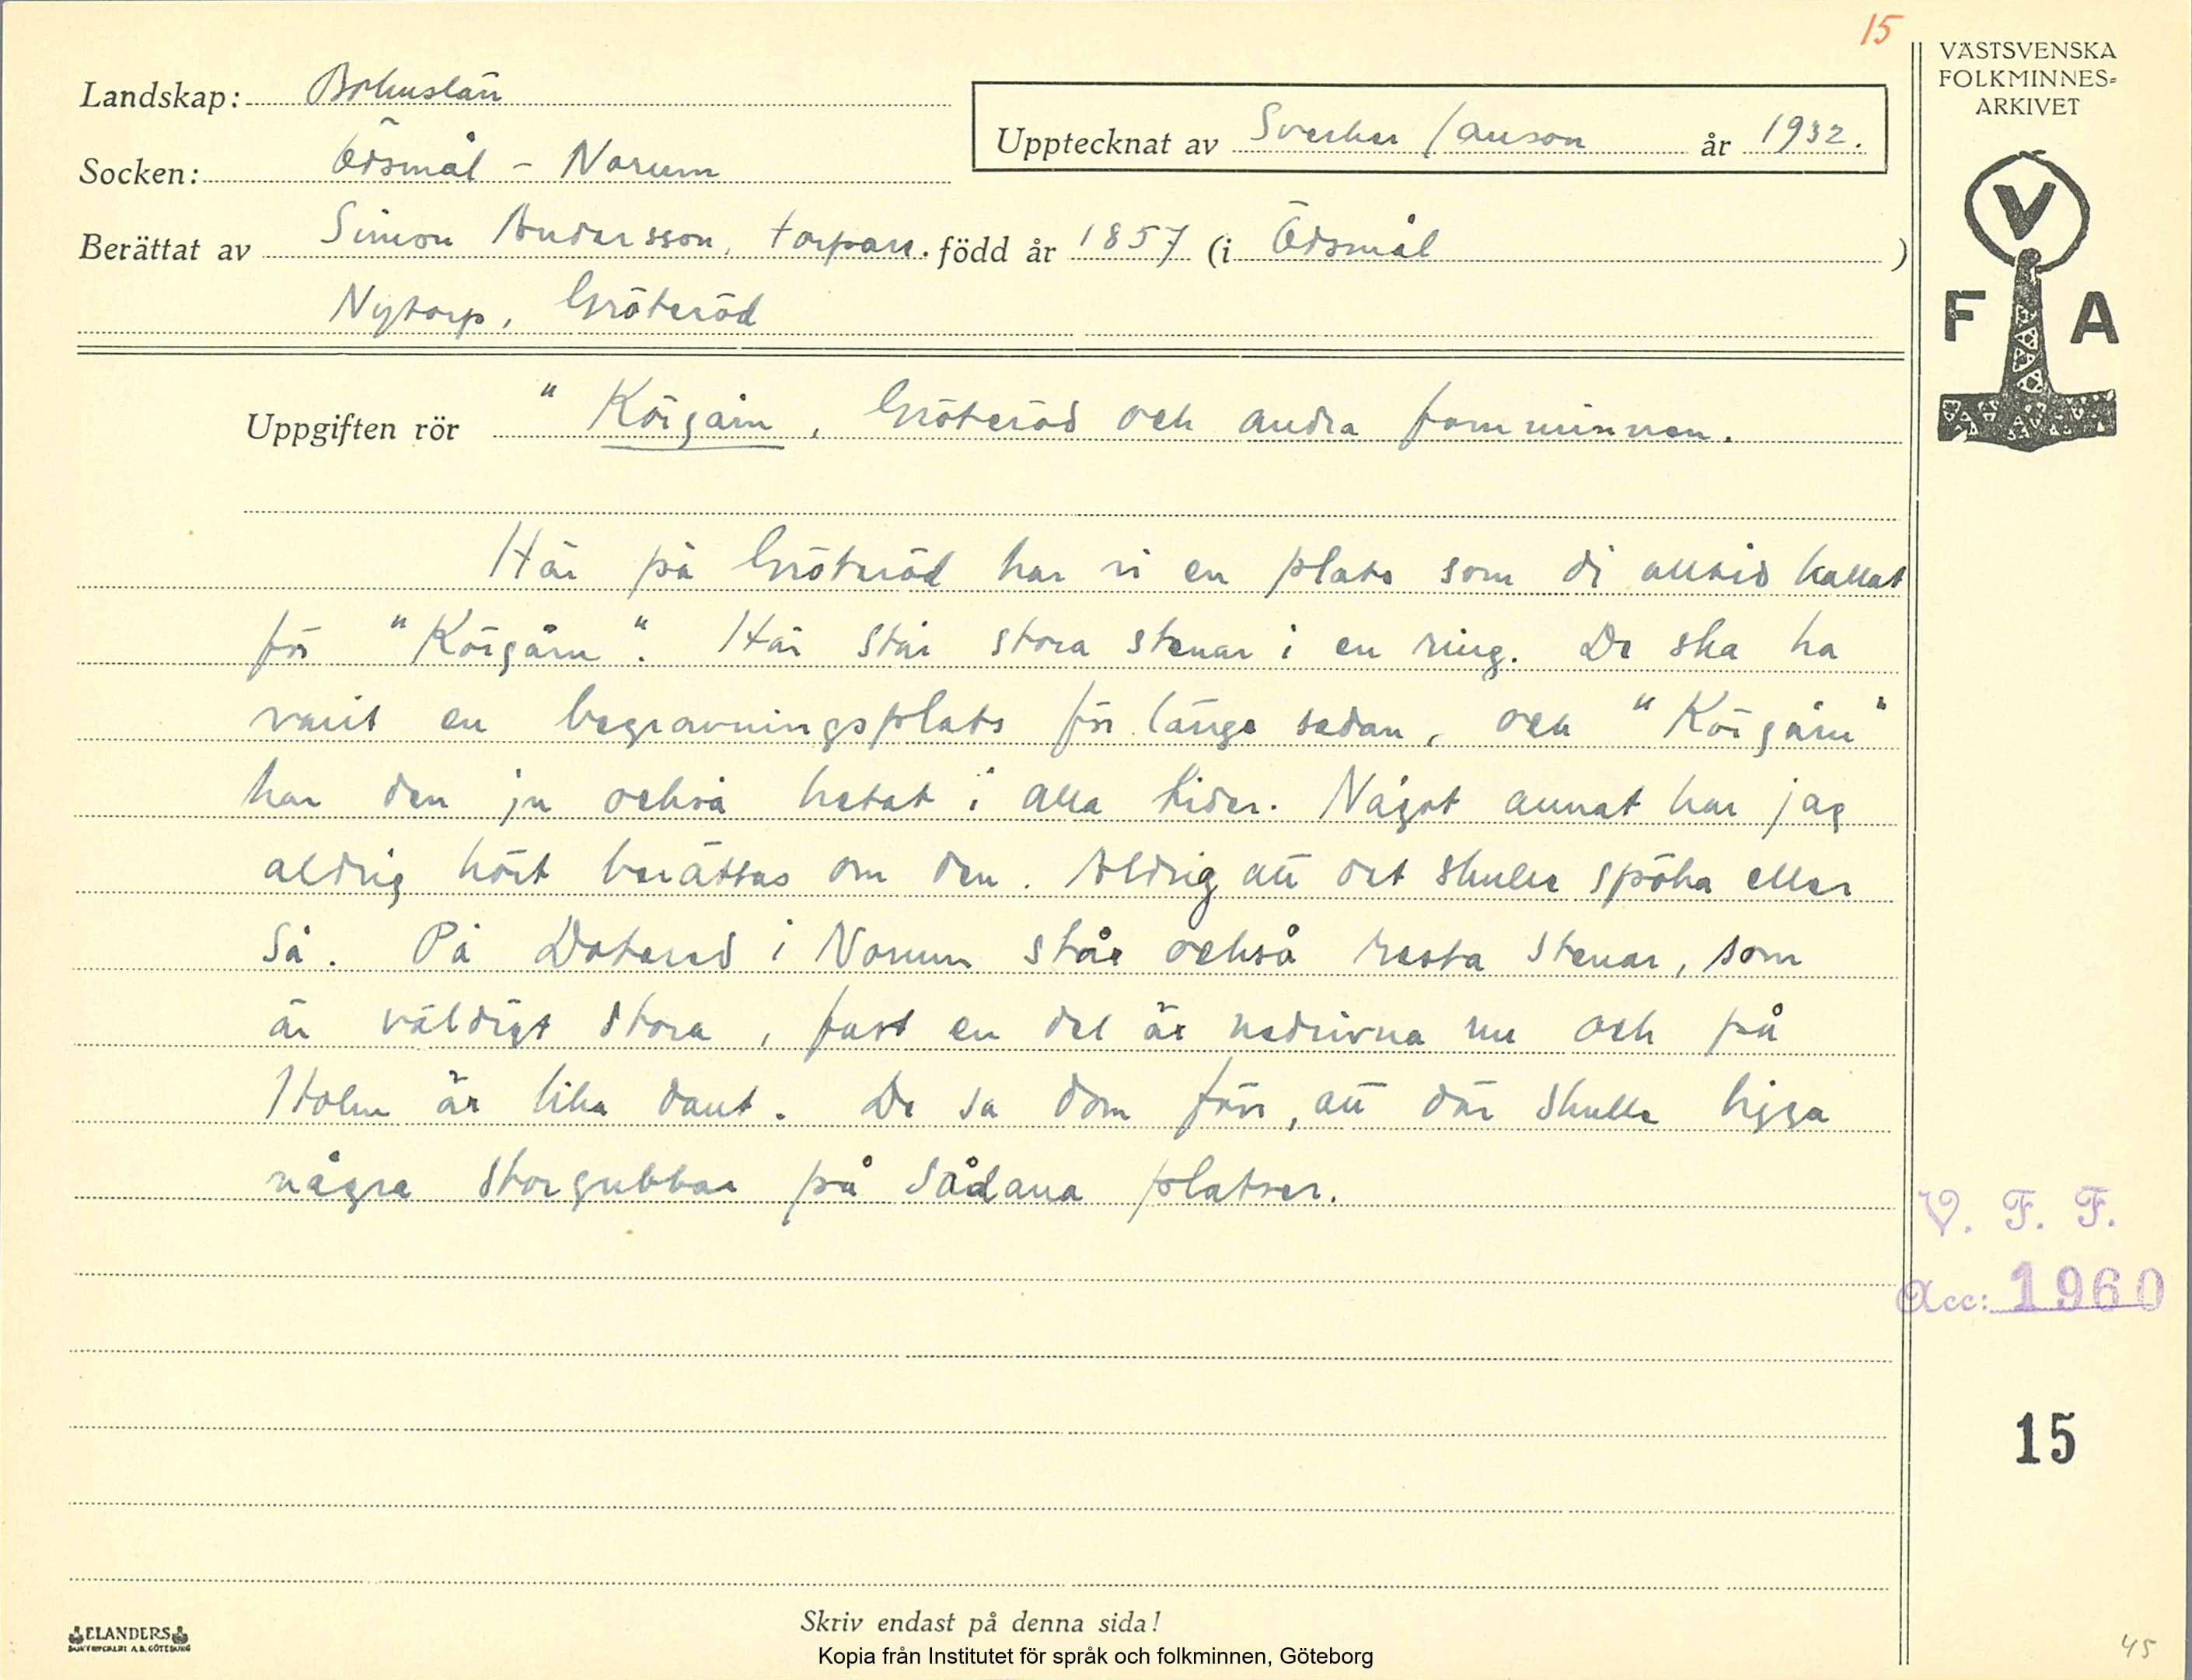 15
VÄSTSVENSKA
FOLKMINNES-
ARKIVET
Landskap: Bohuslän
Upptecknat av Sverker Janson år 1932.
Socken: Ödsmål - Norum
Berättat av Simon Andersson, torpare. född år 1857 (i Ödsmål )
Nytorp, Gröteröd
V
F A
Uppgiften rör "Körgårn, Gröteröd och andra fornminnen.
Här på Gröteröd har vi en plats som di alltid kallat
för "Körgårn". Här står stora stenar i en ring. De ska ha
varit en begravningsplats för länge sedan, och "Körgårn"
har den ju också hetat i alla tider. Något annat har jag
aldrig hört berättas om den. Aldrig att det skulle spöka eller
så. På Doterød i Norum står också resta stenar, som
är väldigt stora, fast en del är nedrivna nu och på
Holm är lika dant. De sa dom förr, att där skulle ligga
några storgubbar på sådana platser.
V. F. F.
Acc: 1960
15
Skriv endast på denna sida!
ELANDERS
BOKTRYCKERI A.B. GÖTEBORG
Kopia från Institutet för språk och folkminnen, Göteborg
45